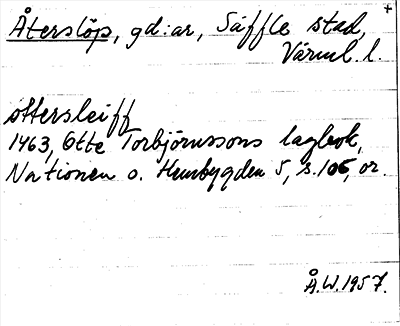 +
Återslöp, gd:ar, Säffle stad,
Värml. l.
ottersleiff
1463, Otte Torbjörnssons lagbok,
Nationen o. Hembygden 5, s. 106, or.
Å.W. 1957.